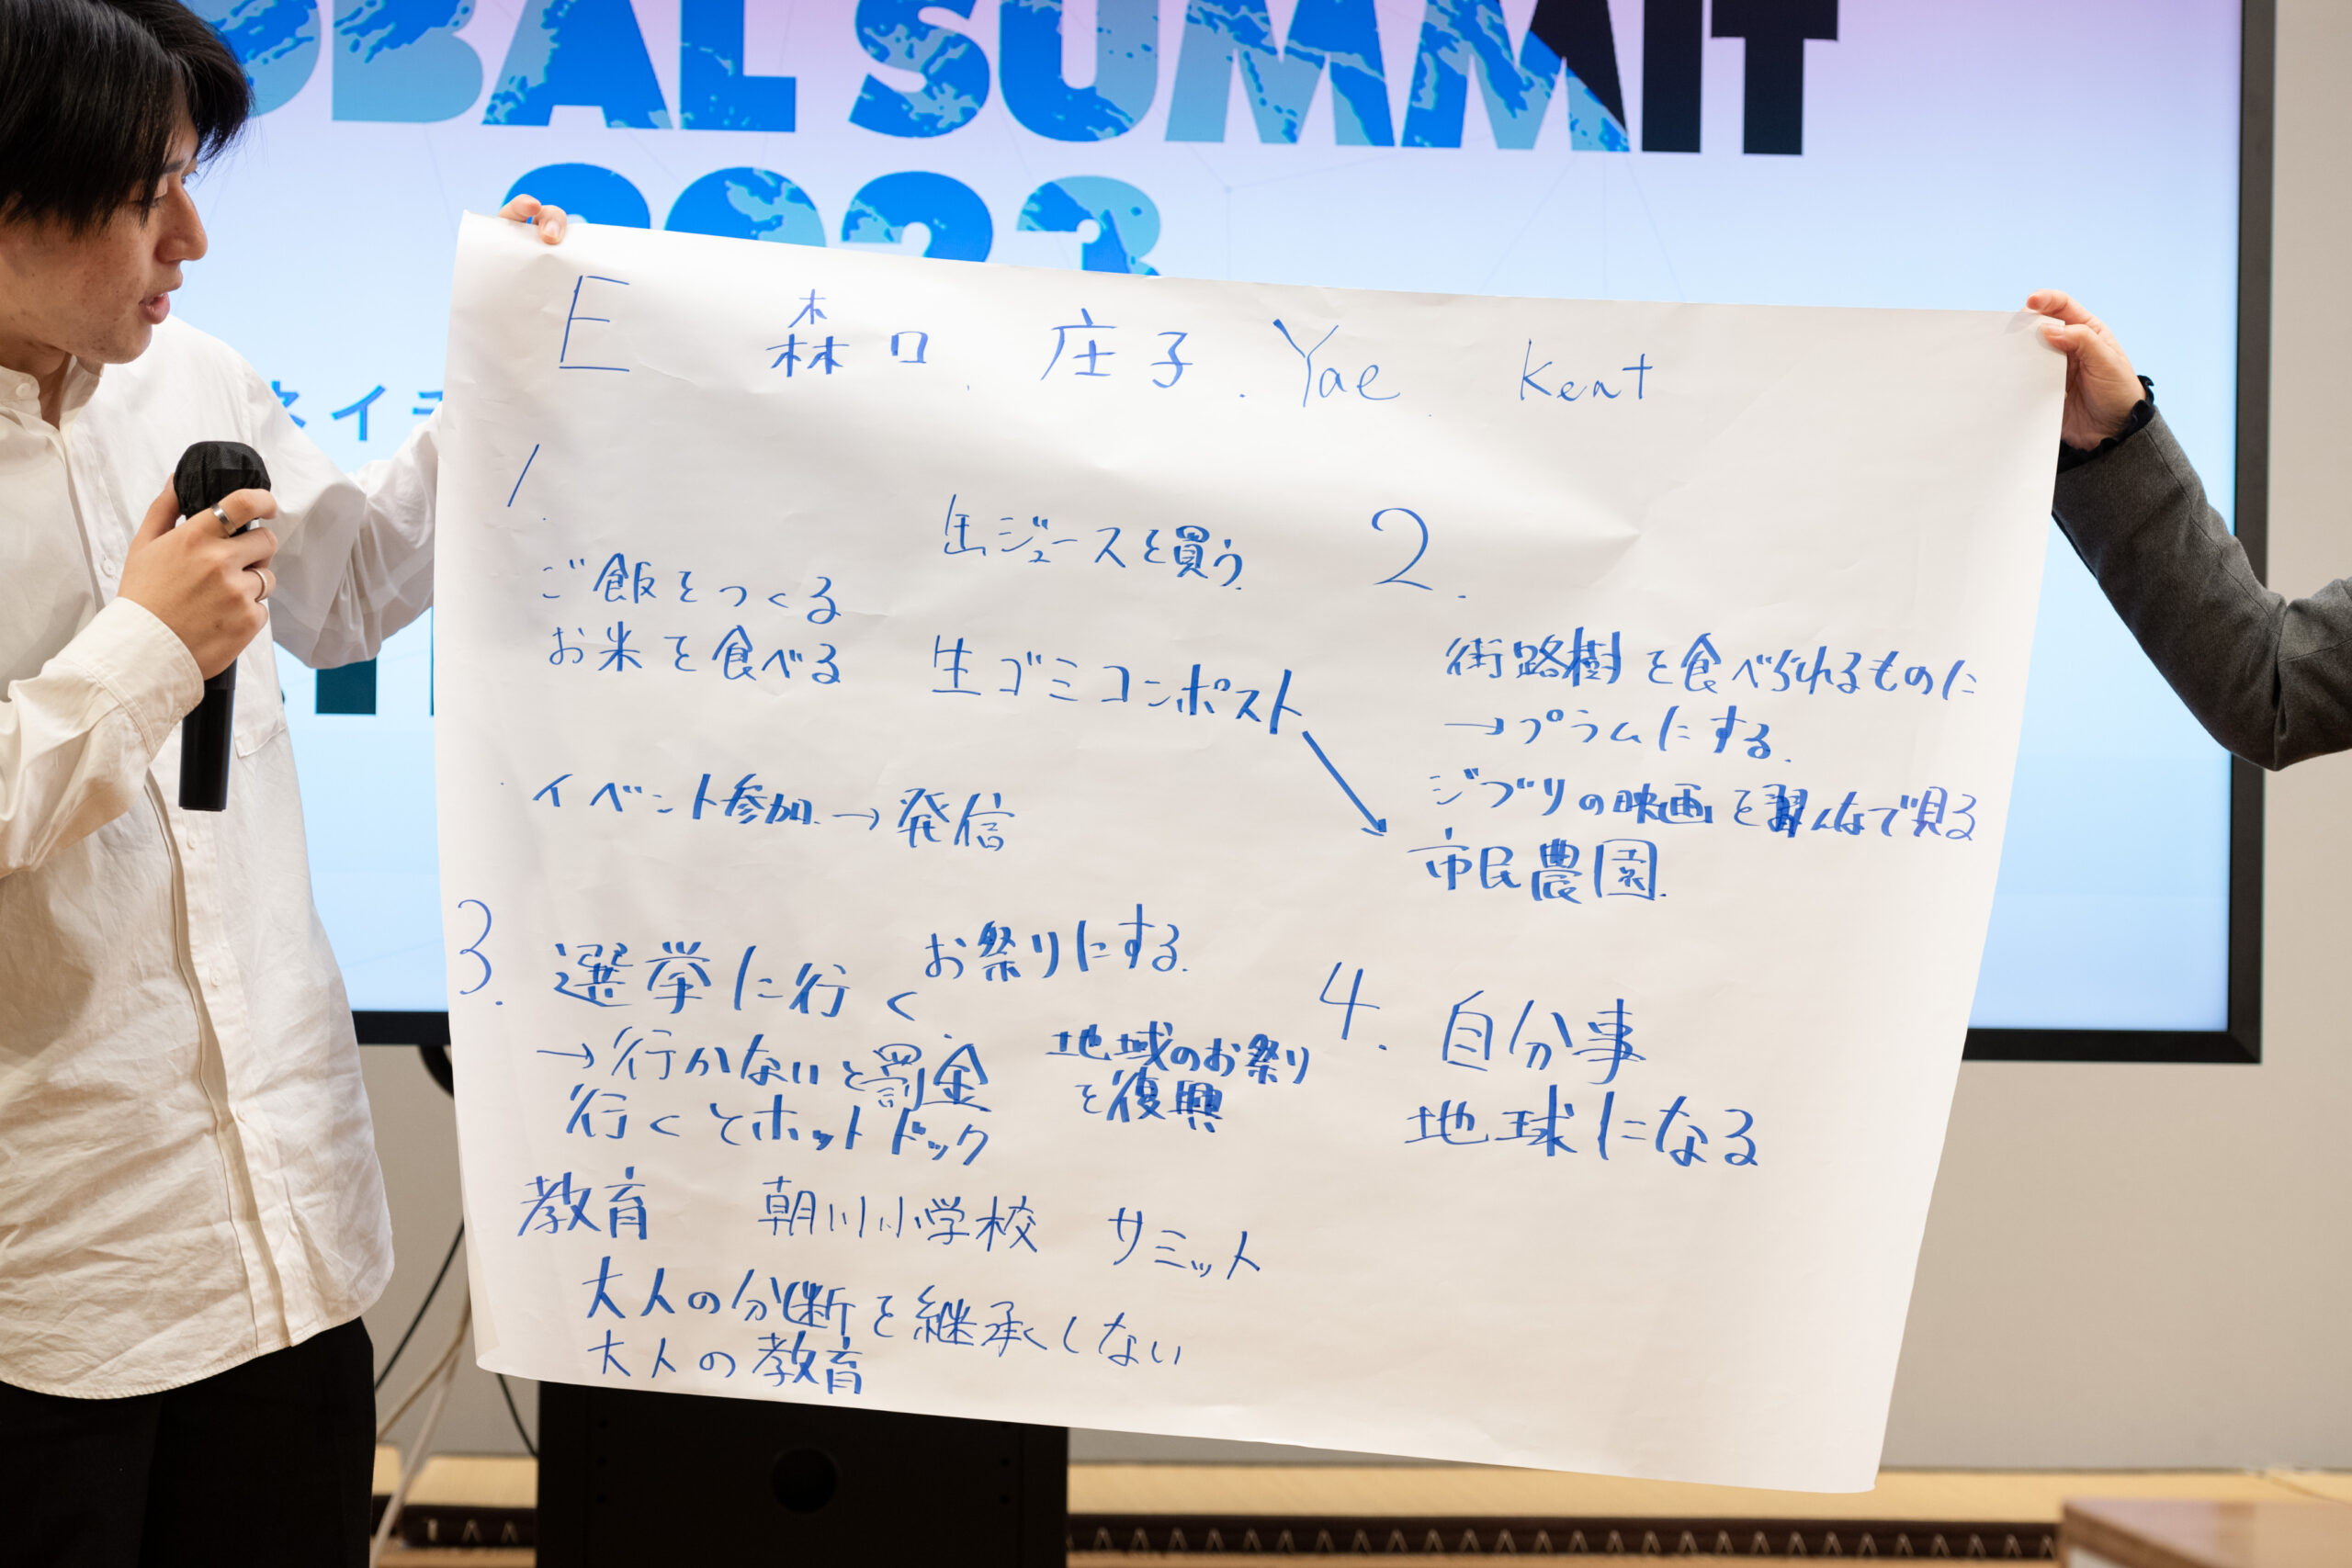 OBAL SUMMIT
2023
ネイチ
E 森口. 庄子. Yae. Kent
1.
缶ジュースを買う.
ご飯をつくる
お米を食べる
生ゴミコンポスト
イベント参加.→発信
2.
街路樹を食べられるものに
→プラムにする.
ジブリの映画を んなで見る
市民農園.
3.
選挙に行く
お祭りにする.
→行かないと罰金
行くとホットドック
地域のお祭り
を復興
教育 朝川小学校 サミット
大人の分断を継承しない
大人の教育
4. 自分事
地球になる